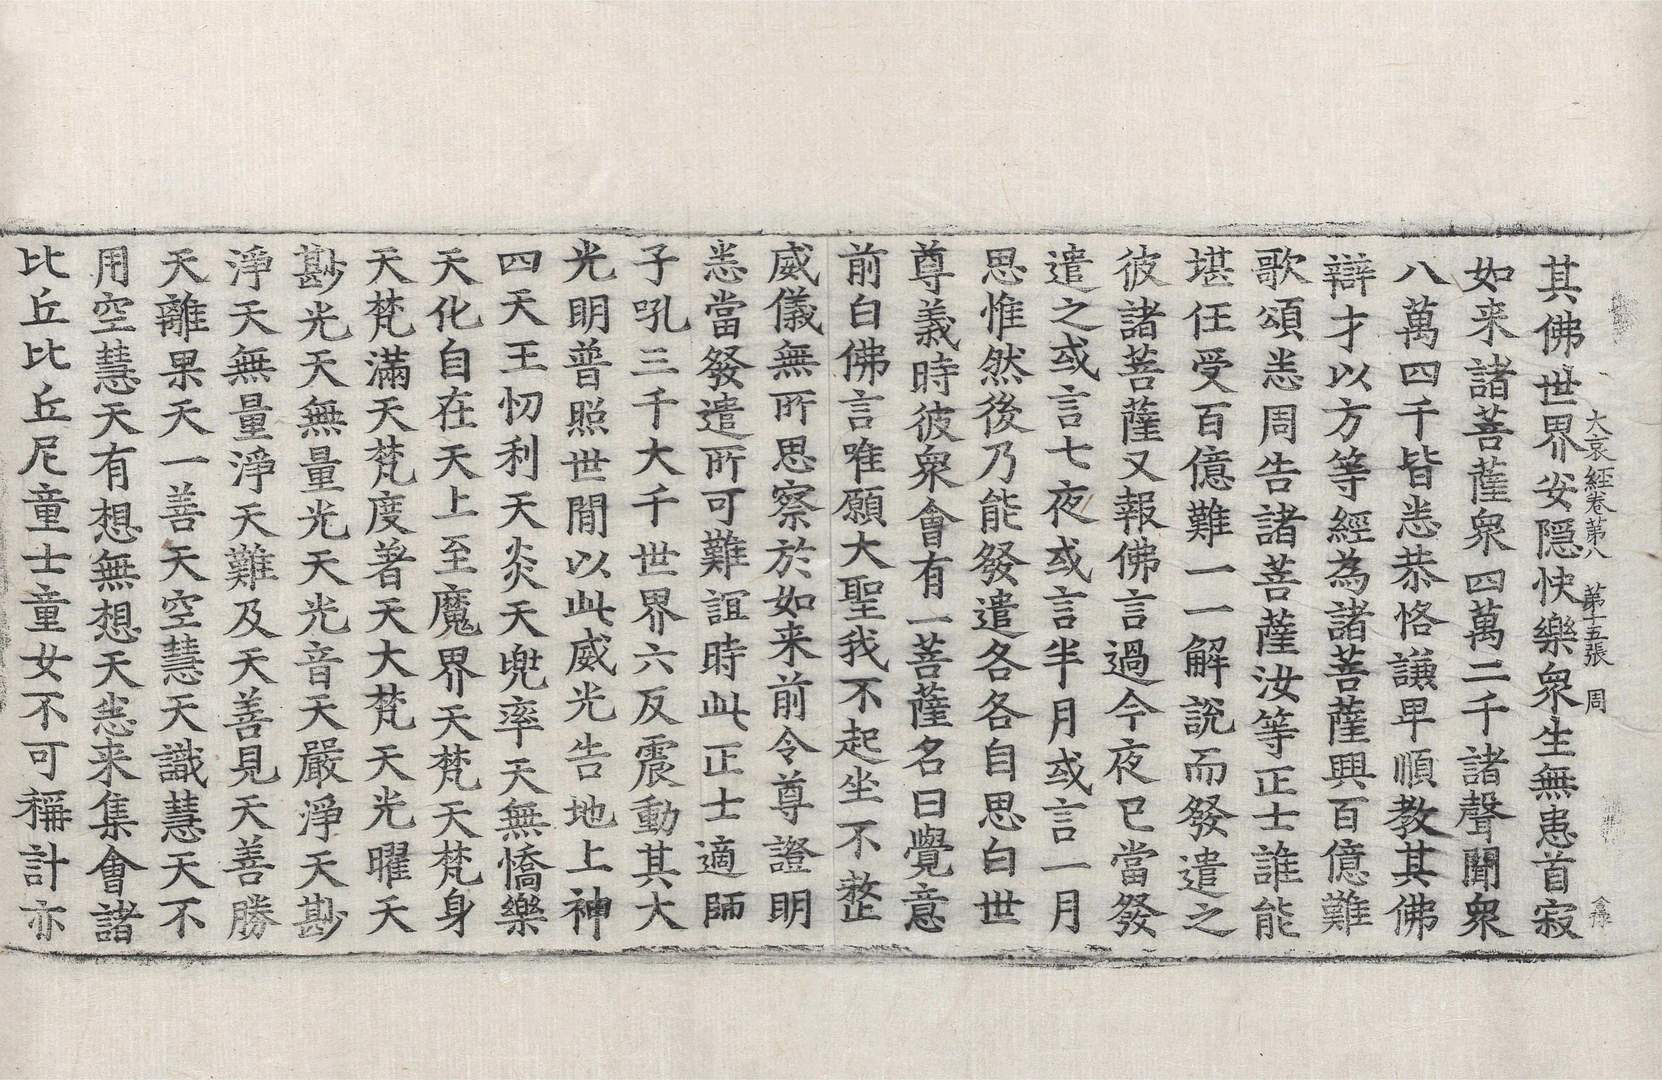 大哀經卷第八　第十五張　周
其佛世界安隱快樂衆生無患首寂
如来諸菩薩衆四萬二千諸聲聞衆
八萬四千皆悉恭恪謙卑順教其佛
辯才以方等經為諸菩薩興百億難
歌頌悉周告諸菩薩汝等正士誰能
堪任受百億難一一解說而發遣之
彼諸菩薩又報佛言過今夜已當發
遣之或言七夜或言半月或言一月
思惟然後乃能發遣各各自思白世
尊義時彼衆會有一菩薩名曰覺意
前白佛言唯願大聖我不起坐不整
威儀無所思察於如来前令尊證明
悉當發遣所可難誼時此正士適師
子吼三千大千世界六反震動其大
光明普照世間以此威光告地上神
四天王忉利天炎天兜率天無憍樂
天化自在天上至魔界天梵天梵身
天梵滿天梵度著天大梵天光曜天
尠光天無量光天光音天嚴淨天尠
淨天無量淨天難及天善見天善勝
天離果天一善天空慧天識慧天不
用空慧天有想無想天悉来集會諸
比丘比丘尼童士童女不可稱計亦